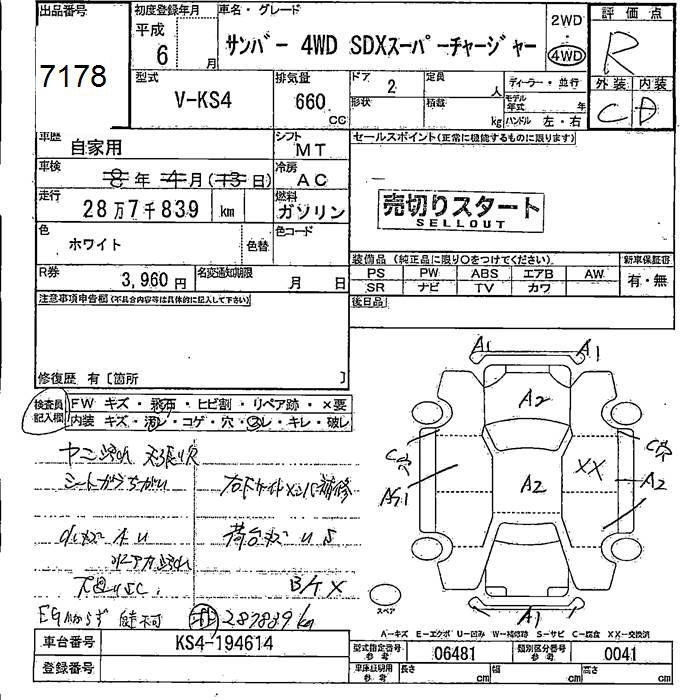 出品番号
7178
初度登録年月
平成
6 月
車名・グレード
サンバー 4WD SDXスーパーチャージャー
2WD
・
4WD
評価点
R
外装 内装
C D
型式
V-KS4
排気量
660 CC
ドア 2
定員 人
形状
積載 kg
ディーラー・並行
モデル年式 年
ハンドル 左・右
車歴
自家用
シフト
MT
車検
8年 4月(13日)
冷房
AC
走行
28万7千839 km
燃料
ガソリン
色
ホワイト
色替
色コード
R券
3,960円
名変通知期限
月 日
セールスポイント(正常に機能するものに限ります)
売切りスタート
SELLOUT
装備品(純正品に限り○をつけてください。)
新車保証書
PS PW ABS エアB AW
SR ナビ TV カワ
有・無
後日品
注意事項申告欄(不具合内容等は具体的に記入して下さい)
修復歴 有[箇所 ]
検査員記入欄
FW キズ・飛石・ヒビ割・リペア跡・×要
内装 キズ・汚レ・コゲ・穴・スレ・キレ・破レ
荷台キズ U S
EGかからず
287839km
車台番号
KS4-194614
登録番号
A1 A1
A2
XX
A2
A2
A1
スペア
A-キズ E-エクボ U-凹み W-補修跡 S-サビ C-腐食 XX-交換済
型式指定番号
参考
06481
類別区分番号
参考
0041
車庫証明用
参考
長さ cm
幅 cm
高さ cm